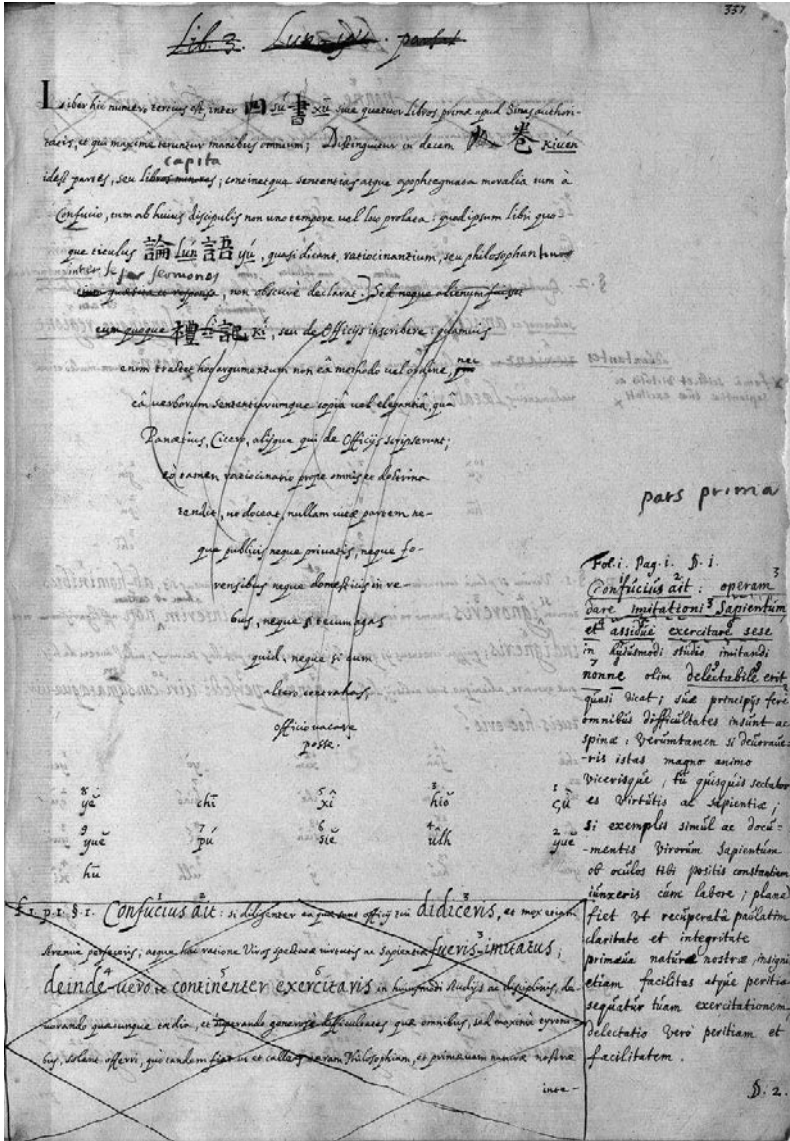 357
Lib. 3. Lun-yu. pars 1
Liber hic numero tercius est, inter 四 sú 書 xū sive quatuor libros primæ apud Sinas authori-
tatis, et qui maximè teruntur manibus omnium; Distinguitur in decem 卷 kiuén
capita
idest partes, seu libros minores; continetque sententias atque apophtegmata moralia tum à
Confucio, tum ab huius discipulis non uno tempore vel loco prolata: quod ipsum libri quo-
que titulus 論 Lún 語 yù, quasi dicant, ratiocinantium, seu philosophantium
inter se sermones
, non obscurè declarat. Sed neque alienum fuisset
eum quoque 禮 lì 記 kí, seu de Officijs inscribere: quamvis
enim tractet hoc argumentum non eâ methodo vel ordine, nec
eâ verborum sententiarumque copiâ vel elegantiâ, quâ
Panætius, Cicero, alijque qui de Officijs scripserunt;
eò tamen ratiocinatio prope omnis et doctrina
tendit, ut doceat, nullam vitæ partem ne-
que publicis neque privatis, neque fo-
rensibus neque domesticis in re-
bus, neque si tecum agas
quid, neque si cum
altero contrahas,
officio vacare
posse.
8 5 3 1
yĕ chī xî hiŏ çù
9 7 6 4 2
yuĕ pú siĕ ûlh yuĕ
hū
f. 1. p. 1. §. 1. Confucius ait: si diligenter ea quæ sunt officij tui didiceris, et mox etiam
strenuè perfeceris; atque hac ratione Viros spectatæ virtutis ac Sapientiæ fueris imitatus;
deinde vero te continenter exercitaris in huiusmodi studijs ac disciplinis, de-
vorando quascunque tædia, et superando generosè difficultates quæ omnibus, sed maximè tyroni-
bus, solent offerri, quò tandem fiat ut et calleas veram Philosophiam, et primævam naturæ nostræ
inte-
pars prima
Fol. 1. Pag. 1. §. 1.
Confucius ait: operam
dare imitationi Sapientum,
et assiduè exercitare sese
in hujusmodi studio imitandi
nonne olim delectabile erit
quasi dicat; suæ principijs ferè
omnibus difficultates insunt ac
spinæ; verumtamen si devoraue-
-ris istas magno animo
vicerisque, tu quisquis sectator
es virtutis ac sapientiæ;
si exemplis simul ac docu-
-mentis virorum sapientum
ob oculos tibi positis constantiam
iunxeris cum labore; planè
fiet ut recuperatâ paulatim
claritate et integritate
primæva naturæ nostræ, insignis
etiam facilitas atque peritia
sequatur tuam exercitationem,
delectatio verò peritiam et
facilitatem.
§. 2.